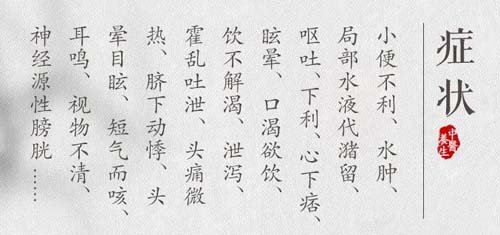 症状
中醫
養生
小便不利、水肿、
局部水液代猪留、
呕吐、下利、心下痞、
眩晕、口渴欲饮、
饮不解渴、泄泻、
霍乱吐泄、头痛微
热、脐下动悸、头
晕目眩、短气而咳、
耳鸣、视物不清、
神经源性膀胱……